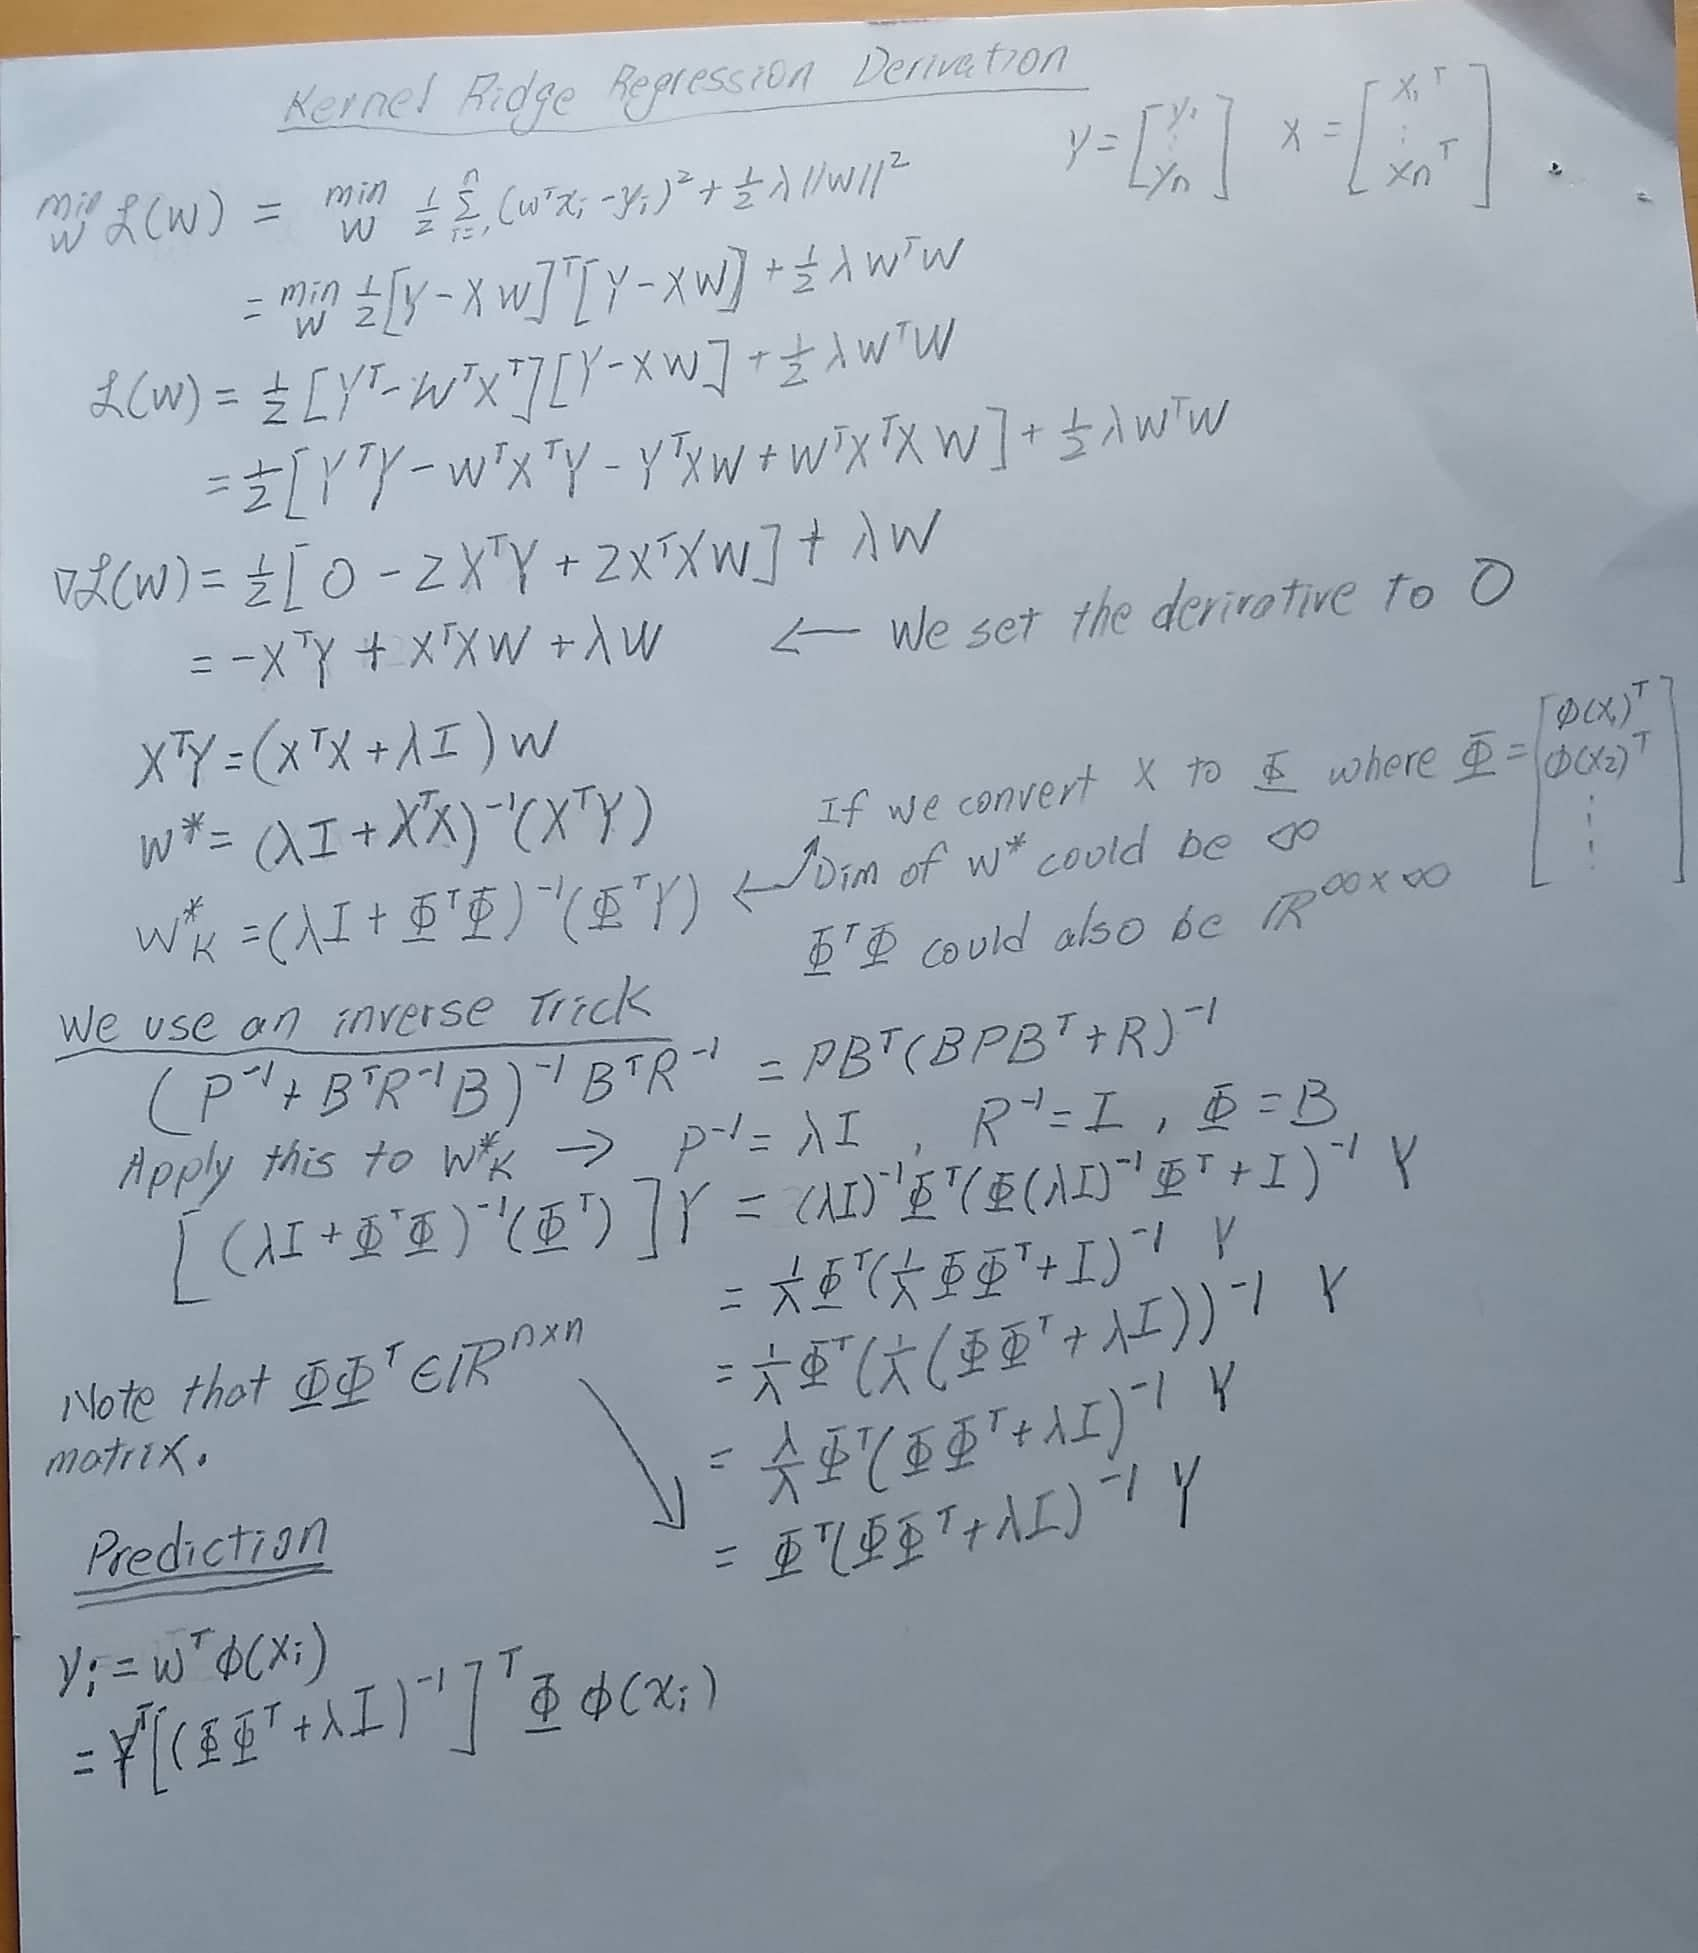 Kernel Ridge Regression Derivation
Y = [y₁ ⋮ yn] X = [x₁ᵀ ⋮ xnᵀ]
min_W ℒ(W) = min_W ½ Σᵢ₌₁ⁿ (wᵀxᵢ - yᵢ)² + ½ λ||W||²
= min_W ½ [Y - XW]ᵀ[Y - XW] + ½ λWᵀW
ℒ(W) = ½ [Yᵀ - WᵀXᵀ][Y - XW] + ½ λWᵀW
= ½ [YᵀY - WᵀXᵀY - YᵀXW + WᵀXᵀXW] + ½ λWᵀW
∇ℒ(W) = ½ [0 - 2XᵀY + 2XᵀXW] + λW
= -XᵀY + XᵀXW + λW ← We set the derivative to 0
XᵀY = (XᵀX + λI)W
If we convert X to Φ where Φ = [ϕ(x₁)ᵀ ϕ(x₂)ᵀ ⋮]
W* = (λI + XᵀX)⁻¹(XᵀY)
Dim of W* could be ∞
W*_K = (λI + ΦᵀΦ)⁻¹(ΦᵀY) ←
ΦᵀΦ could also be ℝ^∞×∞
We use an inverse Trick
(P⁻¹ + BᵀR⁻¹B)⁻¹BᵀR⁻¹ = PBᵀ(BPBᵀ + R)⁻¹
Apply this to W*_K → P⁻¹ = λI , R⁻¹ = I , Φ = B
[(λI + ΦᵀΦ)⁻¹(Φᵀ)]Y = (λI)⁻¹Φᵀ(Φ(λI)⁻¹Φᵀ + I)⁻¹ Y
= 1/λ Φᵀ(1/λ ΦΦᵀ + I)⁻¹ Y
= 1/λ Φᵀ(1/λ (ΦΦᵀ + λI))⁻¹ Y
= λ/λ Φᵀ(ΦΦᵀ + λI)⁻¹ Y
= Φᵀ(ΦΦᵀ + λI)⁻¹ Y
Note that ΦΦᵀ ∈ ℝⁿˣⁿ
matrix.
Prediction
yᵢ = wᵀϕ(xᵢ)
= Yᵀ[(ΦΦᵀ + λI)⁻¹]ᵀ Φ ϕ(xᵢ)